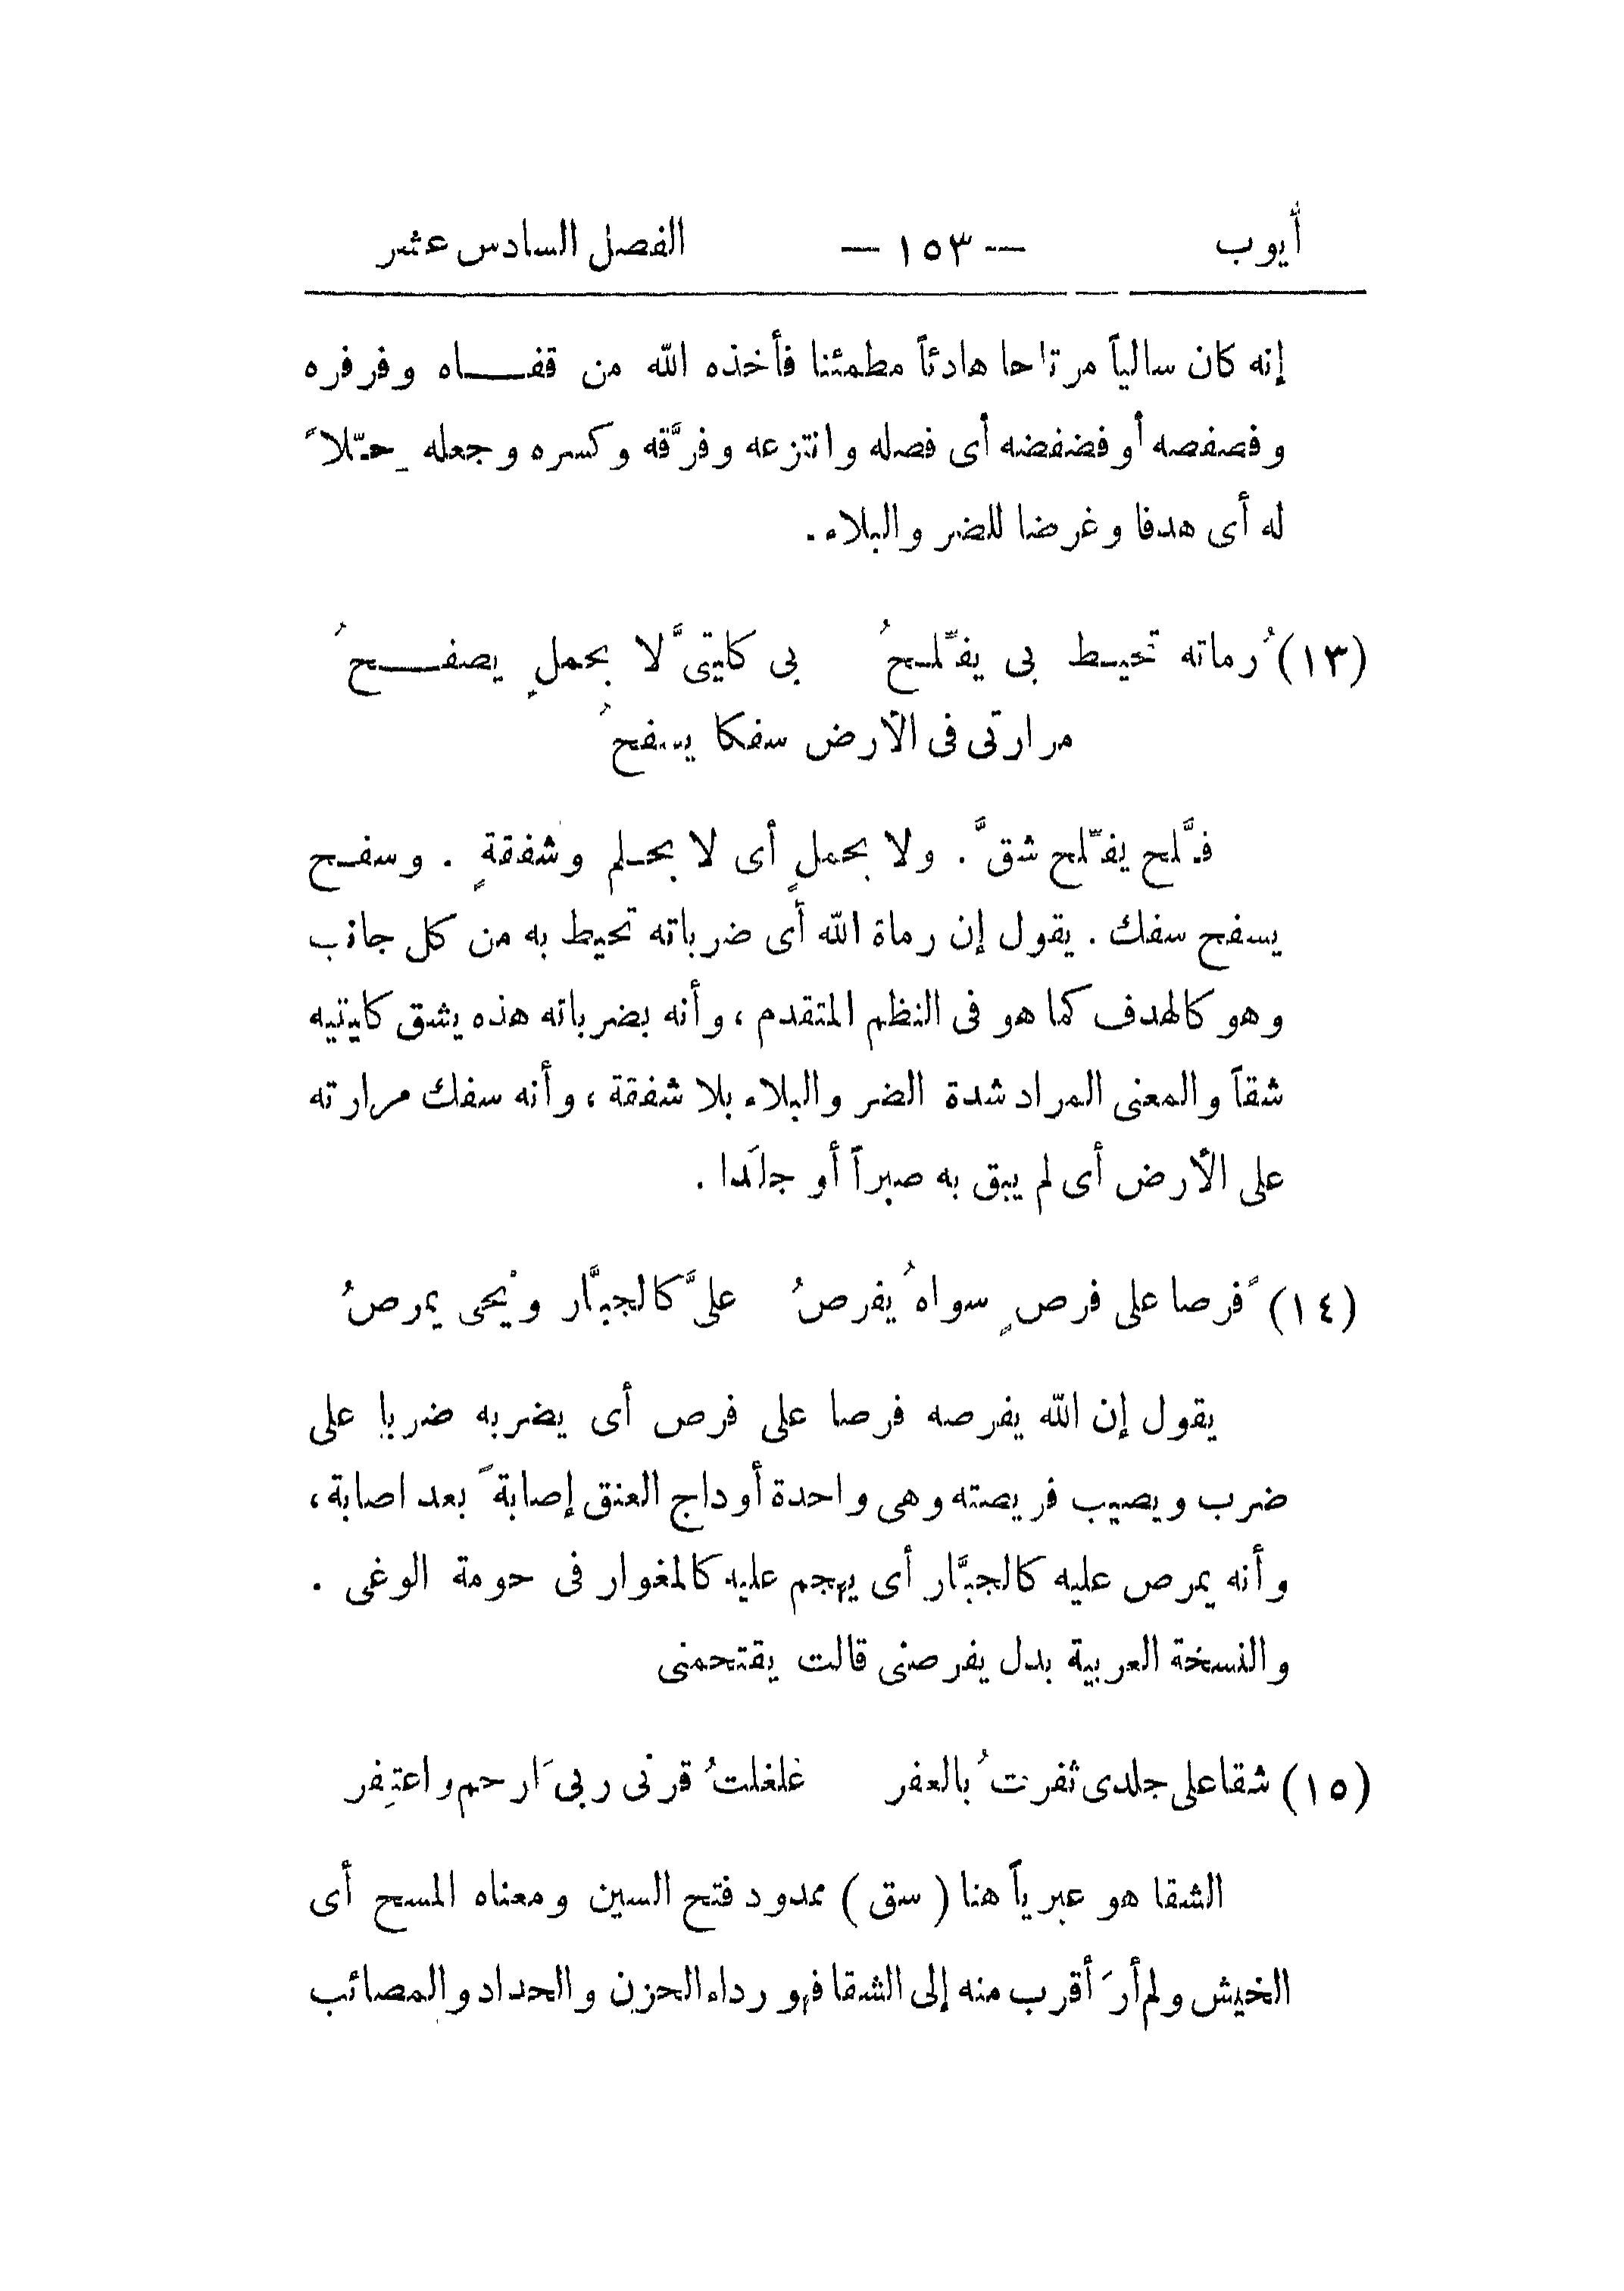 أيوب — ١٥٣ — الفصل السادس عشر
إنه كان سالياً مرتاحا هادئاً مطمئنا فأخذه الله من قفــاه وفرفره
وفصفصه أو فضفضه أى فصله وانتزعه وفرَّقه وكسره وجعله
له أى هدفا وغرضا للضر والبلاء.
(١٣) رُماته تحيـط بى يفـِّلـحُ بى كليتىَّ لا بحملٍ يصفــحُ
مرارتى فى الأرض سفكا يسفحُ
فـَّلح يفـِّلح شقَّ. ولا بحملٍ أى لا بحـلم وشفقةٍ. وسفـح
يسفح سفك. يقول إن رماة الله أى ضرباته تحيط به من كل جانب
وهو كالهدف كما هو فى النظم المتقدم، وأنه بضرباته هذه يشق كليتيه
شقاً والمعنى المراد شدة الضر والبلاء بلا شفقة، وأنه سفك مرارته
على الأرض أى لم يبق به صبراً أو جلَدا.
(١٤) فَرصا على فرصٍ سواهُ يفرصُ علىَّ كالجبَّار ونْحى يمرصُ
يقول إن الله يفرصه فرصا على فرص أى يضربه ضربا على
ضرب ويصيب فريصته وهى واحدة أوداج العنق إصابةً بعد اصابة،
وأنه يمرص عليه كالجبَّار أى يهجم عليه كالمغوار فى حومة الوغى.
والنسخة العربية بدل يفرصنى قالت يقتحمنى
(١٥) شقا على جلدى ثفرتُ بالعفر غلغلتُ قرنى ربىَ ارحم واعتِفر
الشقا هو عبرياً هنا (سق) ممدود فتح السين ومعناه المسح أى
الخيش ولم أرَ أقرب منه إلى الشقا فهو رداء الحزن والحداد والمصائب